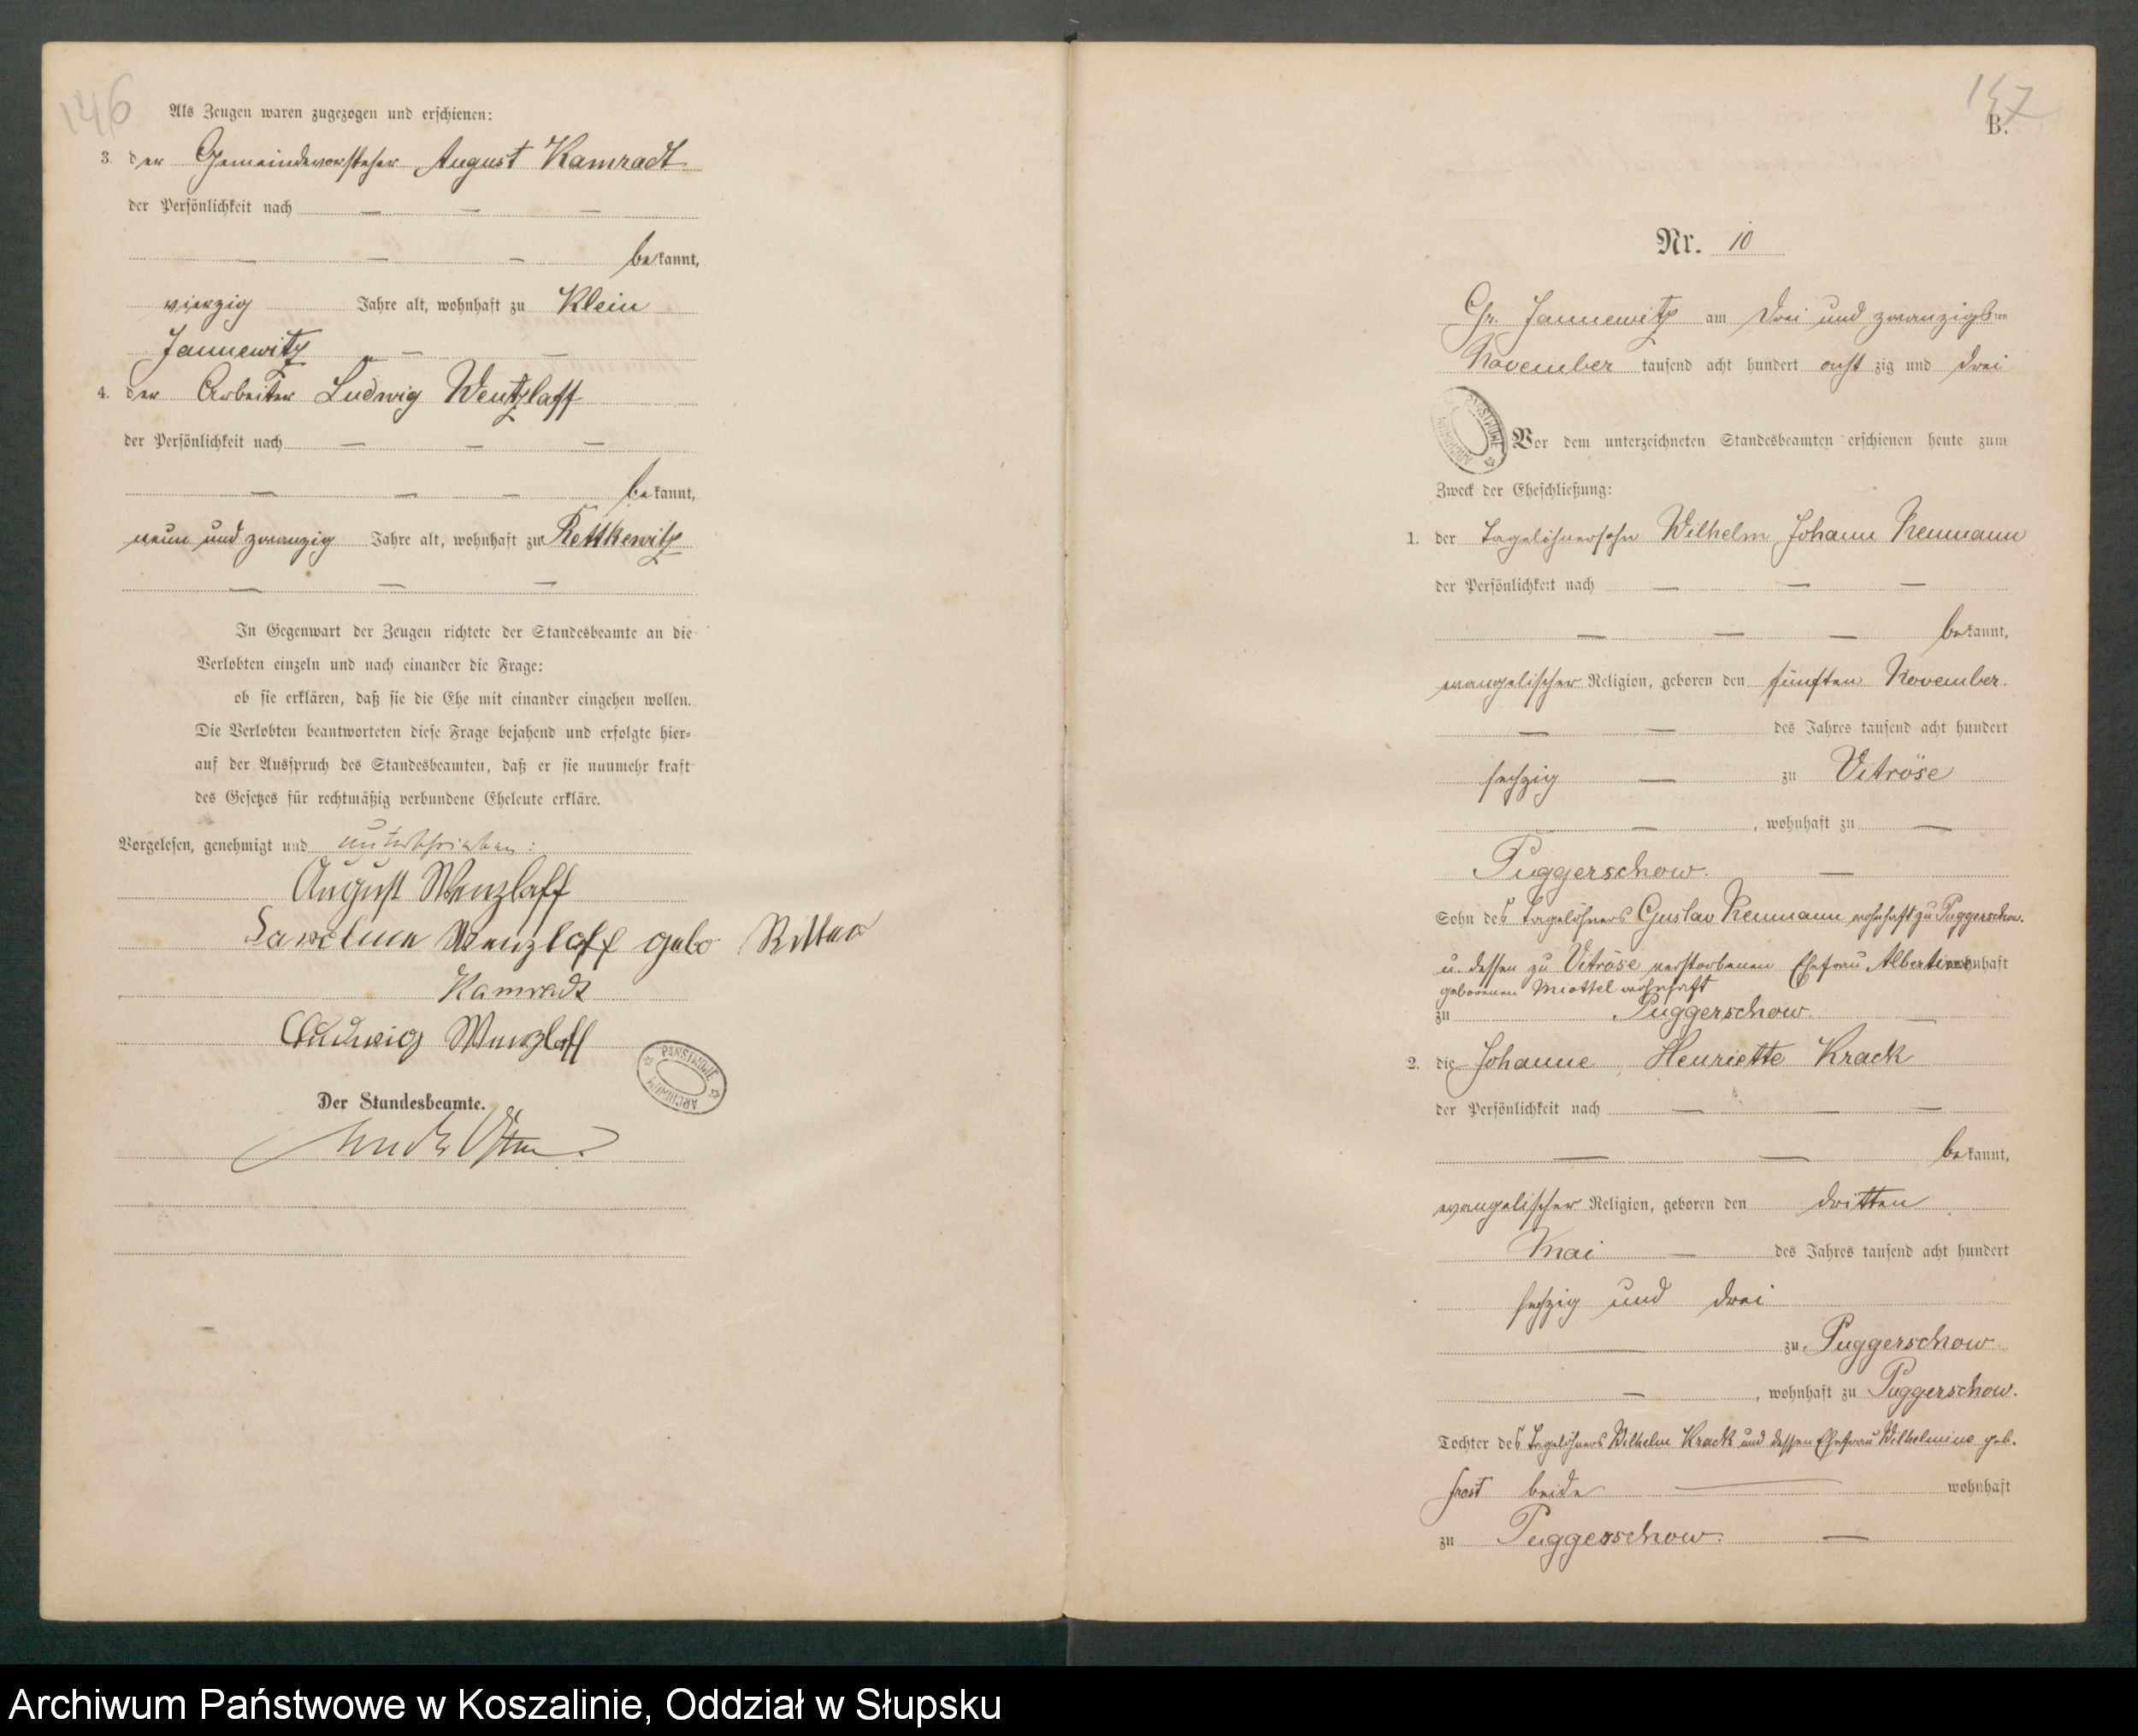 146
Als Zeugen waren zugezogen und erschienen:
3. der Gemeindevorsteher August Kamradt
der Persönlichkeit nach — — —
— — — bekannt,
vierzig Jahre alt, wohnhaft zu Klein
Jannewitz — —
4. der Arbeiter Ludwig Wentzlaff
der Persönlichkeit nach — — —
— — — bekannt,
neun und zwanzig Jahre alt, wohnhaft zu Rettkewitz
— — —
In Gegenwart der Zeugen richtete der Standesbeamte an die
Verlobten einzeln und nach einander die Frage:
ob sie erklären, daß sie die Ehe mit einander eingehen wollen.
Die Verlobten beantworteten diese Frage bejahend und erfolgte hier-
auf der Ausspruch des Standesbeamten, daß er sie nunmehr kraft
des Gesetzes für rechtmäßig verbundene Eheleute erkläre.
Vorgelesen, genehmigt und unterschrieben:
August Wenzlaff
Karoline Wenzlaff geb Ritter
Kamradt
Ludwig Wenzlaff
ARCHIWUM PAŃSTWOWE
Der Standesbeamte.
147
B.
Nr. 10
Gr. Jannewitz am drei und zwanzigsten
November tausend acht hundert acht zig und drei
ARCHIWUM PAŃSTWOWE
Vor dem unterzeichneten Standesbeamten erschienen heute zum
Zweck der Eheschließung:
1. der Tagelöhnersohn Wilhelm Johann Neumann
der Persönlichkeit nach — — —
— — — bekannt,
evangelischer Religion, geboren den fünften November
— — des Jahres tausend acht hundert
sechzig — zu Vitröse
— , wohnhaft zu —
Puggerschow. —
Sohn des Tagelöhners Gustav Neumann wohnhaft zu Puggerschow.
u. dessen zu Vitröse verstorbenen Ehefrau Albertine wohnhaft
geborenen Miottel wohnhaft
zu Puggerschow. —
2. die Johanne Henriette Krack
der Persönlichkeit nach — — —
— — bekannt,
evangelischer Religion, geboren den dritten
Mai — des Jahres tausend acht hundert
sechzig und drei
— zu Puggerschow
— , wohnhaft zu Puggerschow.
Tochter des Tagelöhners Wilhelm Krack und dessen Ehefrau Wilhelmine geb.
Frost beide — wohnhaft
zu Puggerschow. —
Archiwum Państwowe w Koszalinie, Oddział w Słupsku